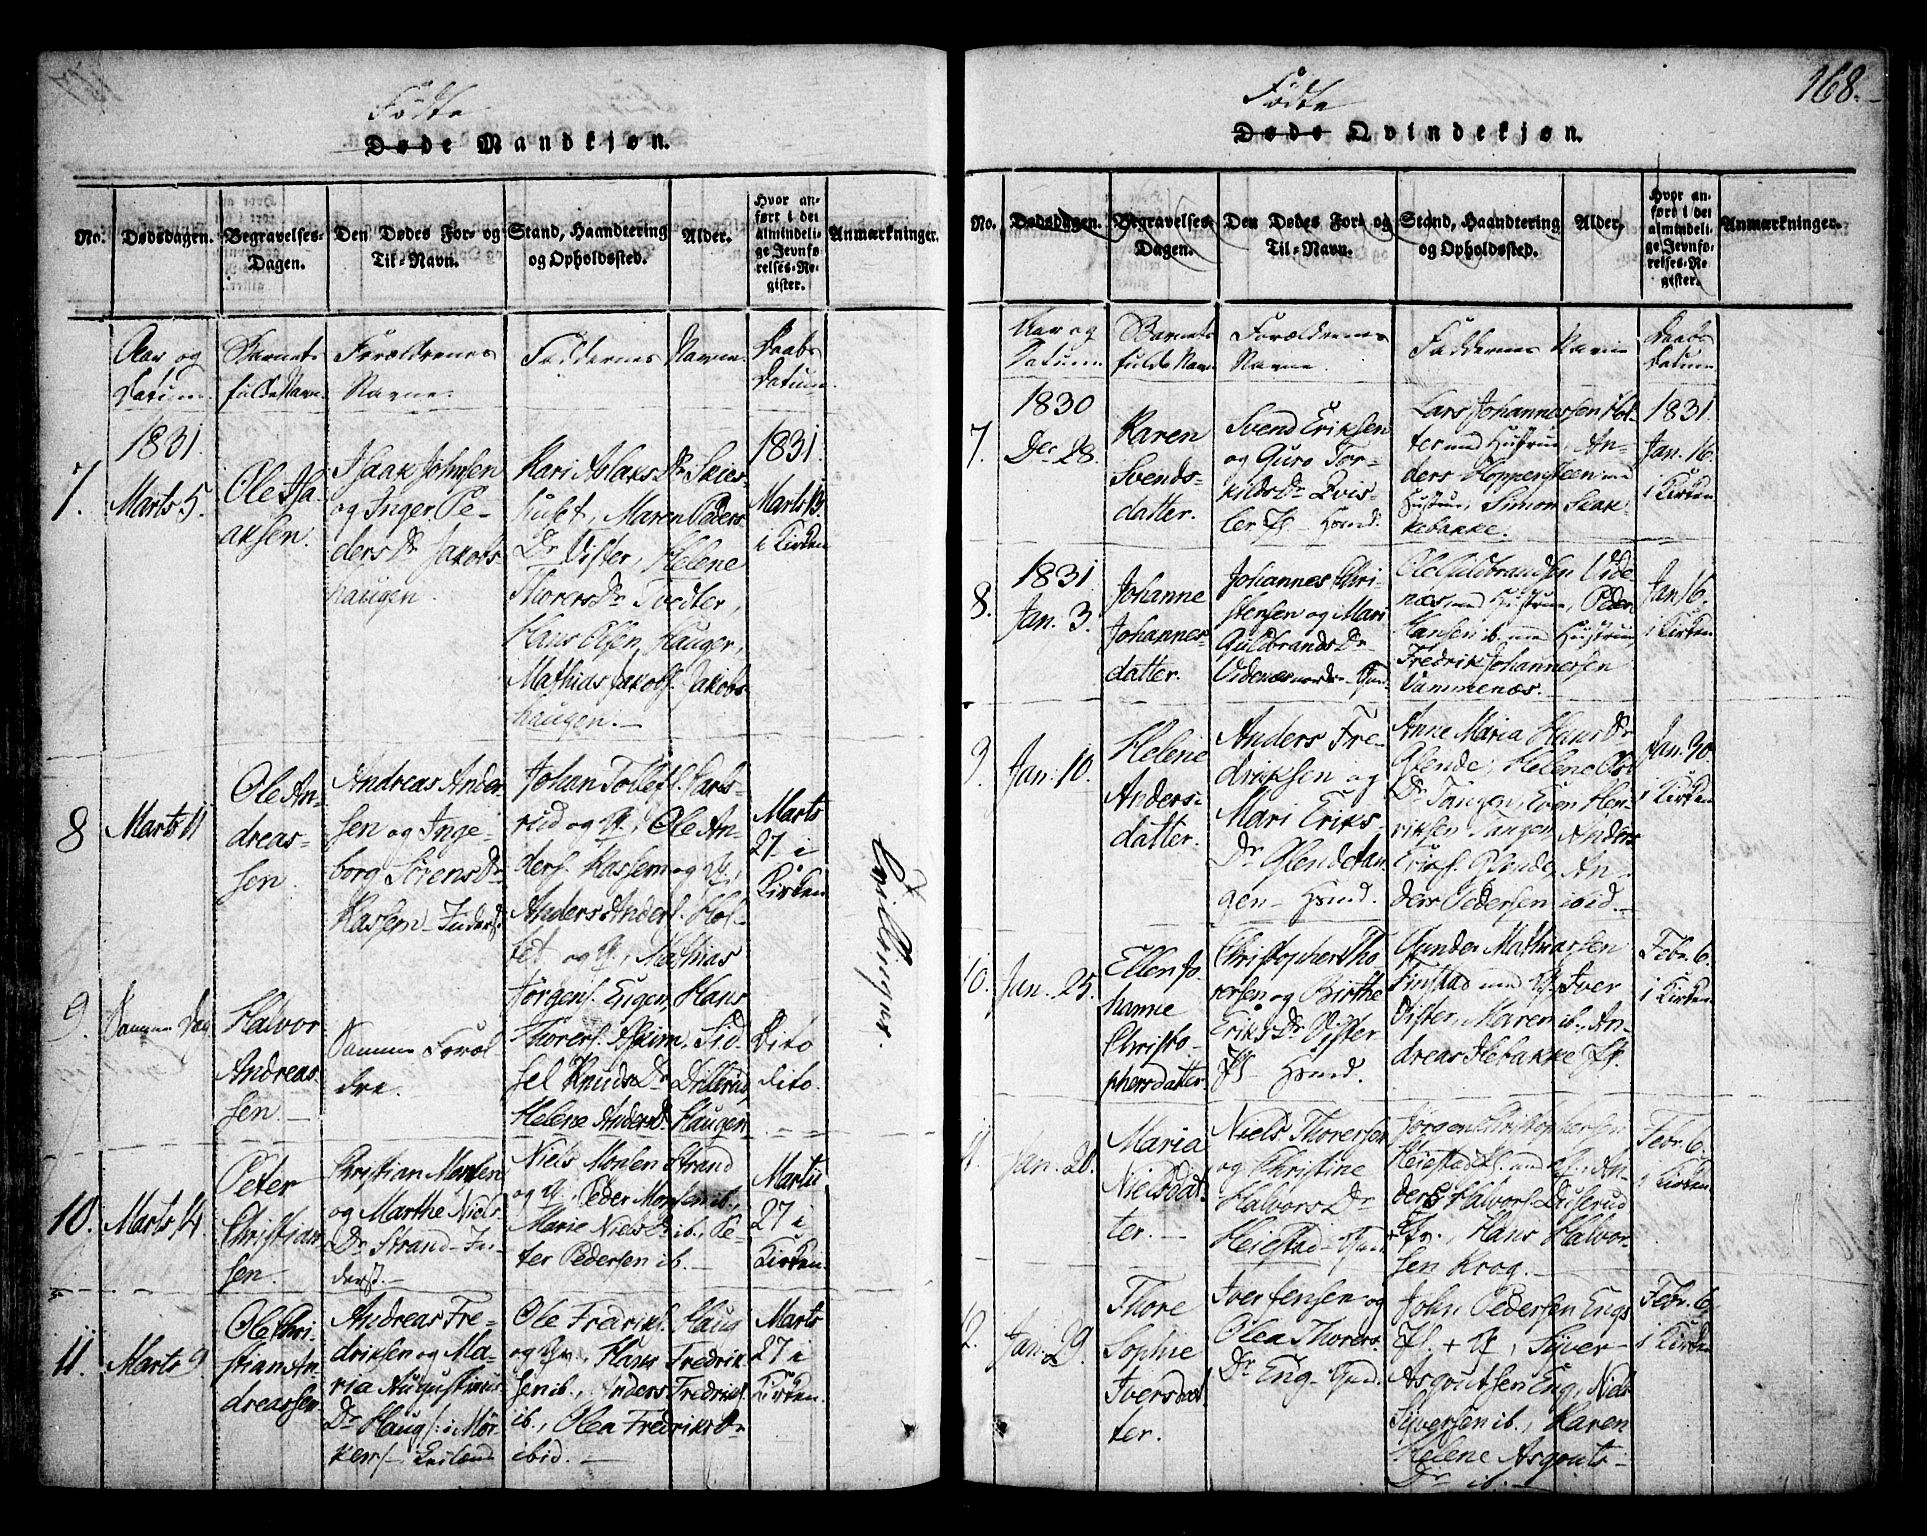 Fødte
Døde Mandkjøn.
No.
Dødsdagen.
Begravelses-
Dagen.
Den Dødes For- og
Til-Navn.
Stand, Haandtering
og Opholdssted.
Alder.
Hvor an-
ført i det
almindeli-
ge Jevnfø-
relses-Re-
gister.
Anmærkninger.
Aar og
Datum.
Barnets
fulde Navn.
Forældrenes
Navne.
Faddernes Navne.
Daabs
Datum.
7.
1831.
Marts 5.
Ole Isa-
aksen.
Isaak Johnsen
og Inger Pe-
ders Dr Jakobs-
haugen.
Kari Aslaks Dr Skies-
hulet, Maren Peders
Dr Vister, Helene
Thorers Dr Tvedter,
Hans Olsen Hauger,
Mathias Jakobs. Jakobs-
haugen.-
1831
Marts 13.
i Kirken
8
Marts 11
Ole An-
dreas-
sen.
Andreas Ander-
sen og Inge-
borg Sørens Dr
Kassem- Inderst
Johan Tollefs.
rud og Q., Ole An-
ders. Kassem og Q.,
Anders Anders. Hol-
tet og Q., Mathias
Jørgens. Eugen, Hans
Thorers. Askim, Sid-
sel Knuds Dr Dillerud
Helene Anders Dr Haugen
Marts
27 i
Kirken
9.
Samme Dag
Halvor
Andreas-
sen.-
Samme Foræl-
dre.
Dito
dito.
10.
Marts 14.
Peter
Christian-
sen.-
Christian Monsen
og Marthe Niels
Dr Strand- In-
derst.-
Niels Monsen Strand
og Q., Peder Monsen ib.,
Marie Niels Dr ib., Pe-
ter Pedersen ib.-
Martii
27 i
Kirken.
11.
Marts 9.
Ole Chri-
stian An-
dreassen.
Andreas Fre-
driksen og Ma-
ria Augustinus
Dr Haug i Mør-
ker
Ole Fredriks. Haug
og Qv., Hans Fredrik-
sen ib., Anders Fredriks.
ib., Olea Fredriks Dr
ibid.-
Marts
27 i
Kirken.
Tvillinger.
168.
Fødte
Døde Qvindekjøn.
No.
Dødsdagen.
Begravelses-
Dagen.
Den Dødes For- og
Til-Navn.
Stand, Haandtering
og Opholdssted.
Alder.
Hvor an-
ført i det
almindeli-
ge Jevnfø-
relses-Re-
gister.
Anmærkninger.
Aar og
Datum.
Barnets
fulde Navn
Forældrenes
Navne.
Faddernes Navne
Daabs
Datum
7.
1830
Dec 28.
Karen
Svends-
datter.
Svend Eriksen
og Guro Tor-
kilds Dr Qvis-
ler
Lars Johannessen Hol-
ter med Hustrue, An-
ders Koppersteen med
Hustrue, Simon Skak-
kebakke.
1831.
Jan. 16.
i Kirken
8.
1831
Jan. 3.
Johanne
Johannes-
datter.
Johannes Chri-
stensen og Mari
Guldbrands Dr
Videnæs
Ole Guldbrandsen Vide-
næs med Hustrue, Peder
Hansen ib. med Hustrue,
Fredrik Johannessen
Vammenæs.
Jan 16.
i Kirken
9.
Jan. 10.
Helene
Anders-
datter.
Anders Fre-
driksen og
Mari Eriks
Dr Glendetan-
gen-
Anne Maria Hans Dr
Glende, Helene
Dr Tangen, Even Hen-
riksen Tangen, Anders
Eriks. Glende, An-
ders Pedersen ibid.-
Jan. 30.
i Kirken
10.
Jan. 25.
Ellen Jo-
hanne
Christo-
phersdatter.
Christopher Tho-
rersen og Birthe
Eriks Dr Vister
Gunder Mathiassen
Finstad med Q., Iver
Vister, Maren ib., An-
dreas Ilebakke
Febr. 6.
i Kirken
11.
Jan. 20.
Maria
Nielsdat-
ter.-
Niels Thorersen
og Christine
Halvors Dr
Heiestad-
Jørgen Christophersen
Heiestad med Q., An-
ders Halvors. Duserud
Qv., Hans Halvor-
sen Krog.-
Febr. 6.
i Kirken
12.
Jan. 29.
Thore
Sophie
Iversdat-
ter.
Iver Jensen og
Olea Thorers
Dr Eng-
John Pedersen Engs
Q., Syver
Asgrutsen Eng, Niels
Syversen ib., Karen
Helene Asgruts-
Dr ib.-
Febr. 6.
i Kirken